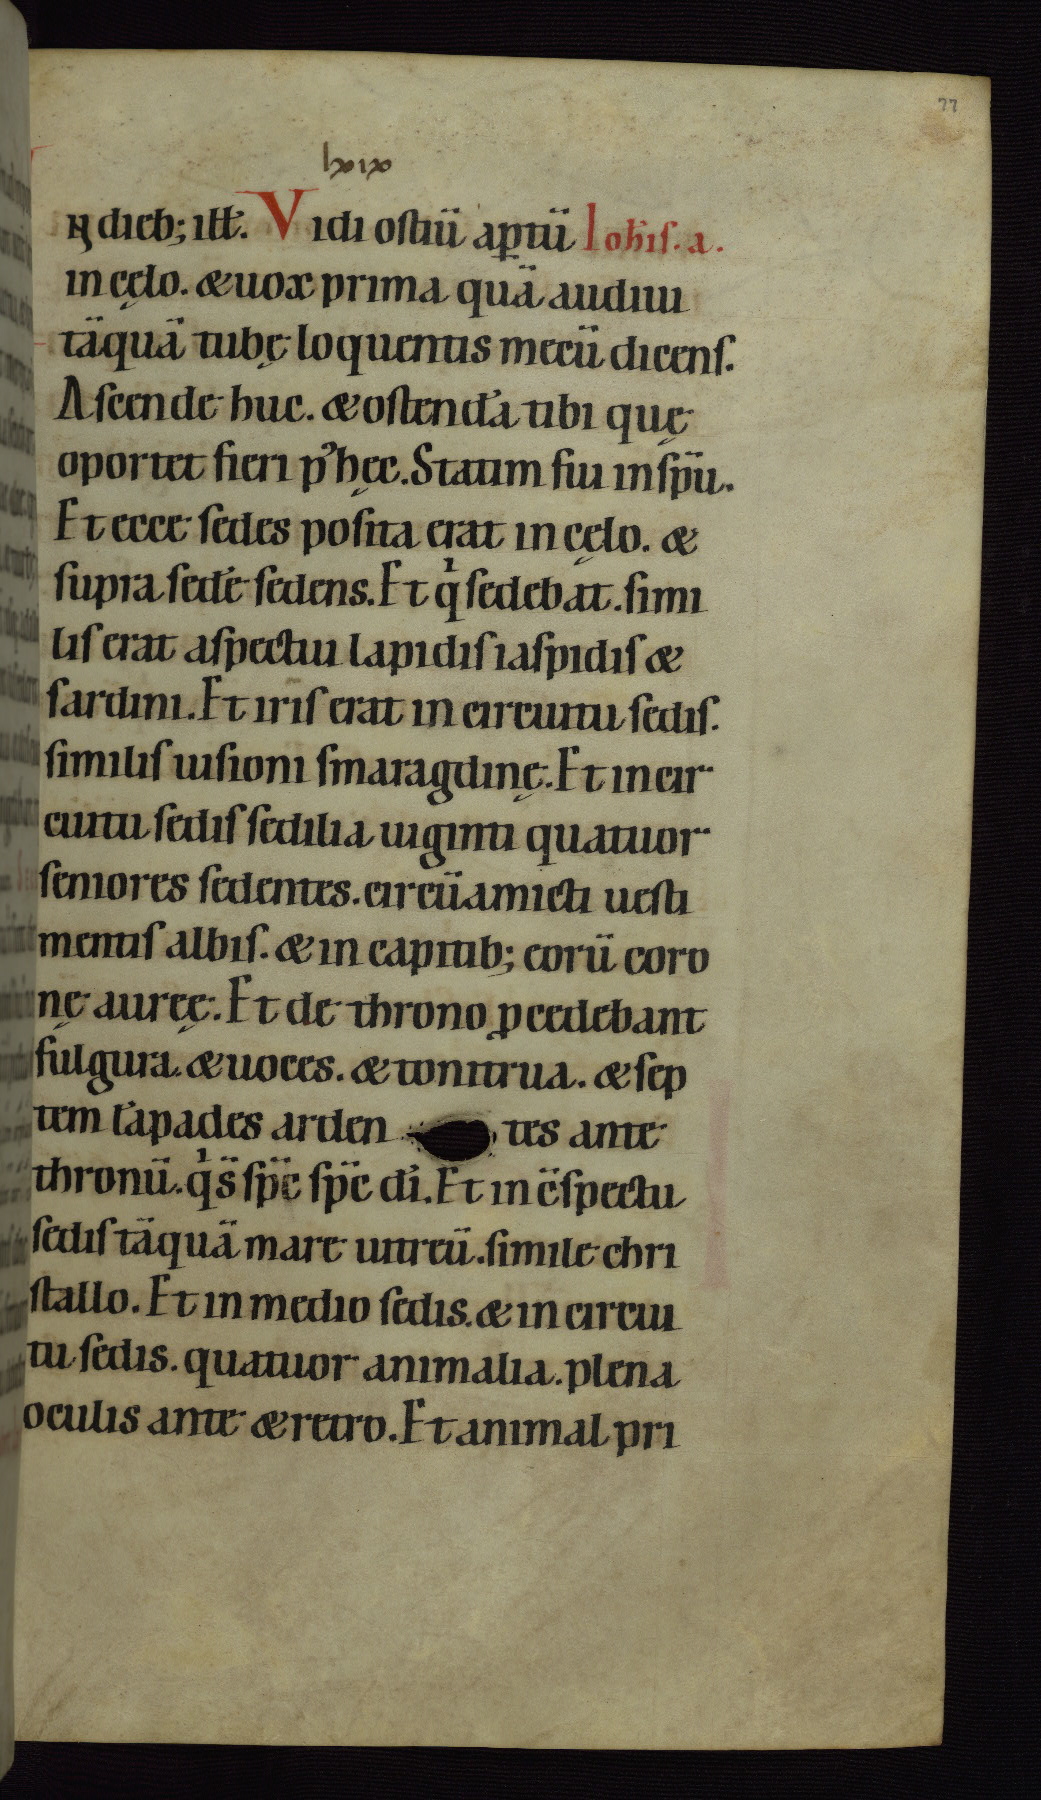 77
lxix
N dieb; illꝉ. Vidi ostiū aꝑtū Ioh̄is. a.
in cęlo. & uox prima quā audiui
tāquā tubę loquentis mecū dicens.
Ascende huc. & ostendā tibi quę
oportet fieri pꝰ hęc. Statim fui in sp̄u.
Et ecce sedes posita erat in cęlo. &
supra sedē sedens. Et qͥ sedebat. simi
lis erat aspectui lapidis iaspidis &
sardini. Et iris erat in circuitu sedis.
similis uisioni smaragdinę. Et in cir
cuitu sedis sedilia uiginti quatuor
seniores sedentes. circūamicti uesti
mentis albis. & in capitib; eorū coro
nę aureę. Et de throno ꝓcedebant
fulgura. & uoces. & tonitrua. & sep
tem lāpades arden tes ante
thronū. qͥ s̄ sp̄c sp̄c dī. Et in c̄spectu
sedis tāquā mare uitreū. simile chri
stallo. Et in medio sedis. & in circui
tu sedis. quatuor animalia. plena
oculis ante & retro. Et animal pri